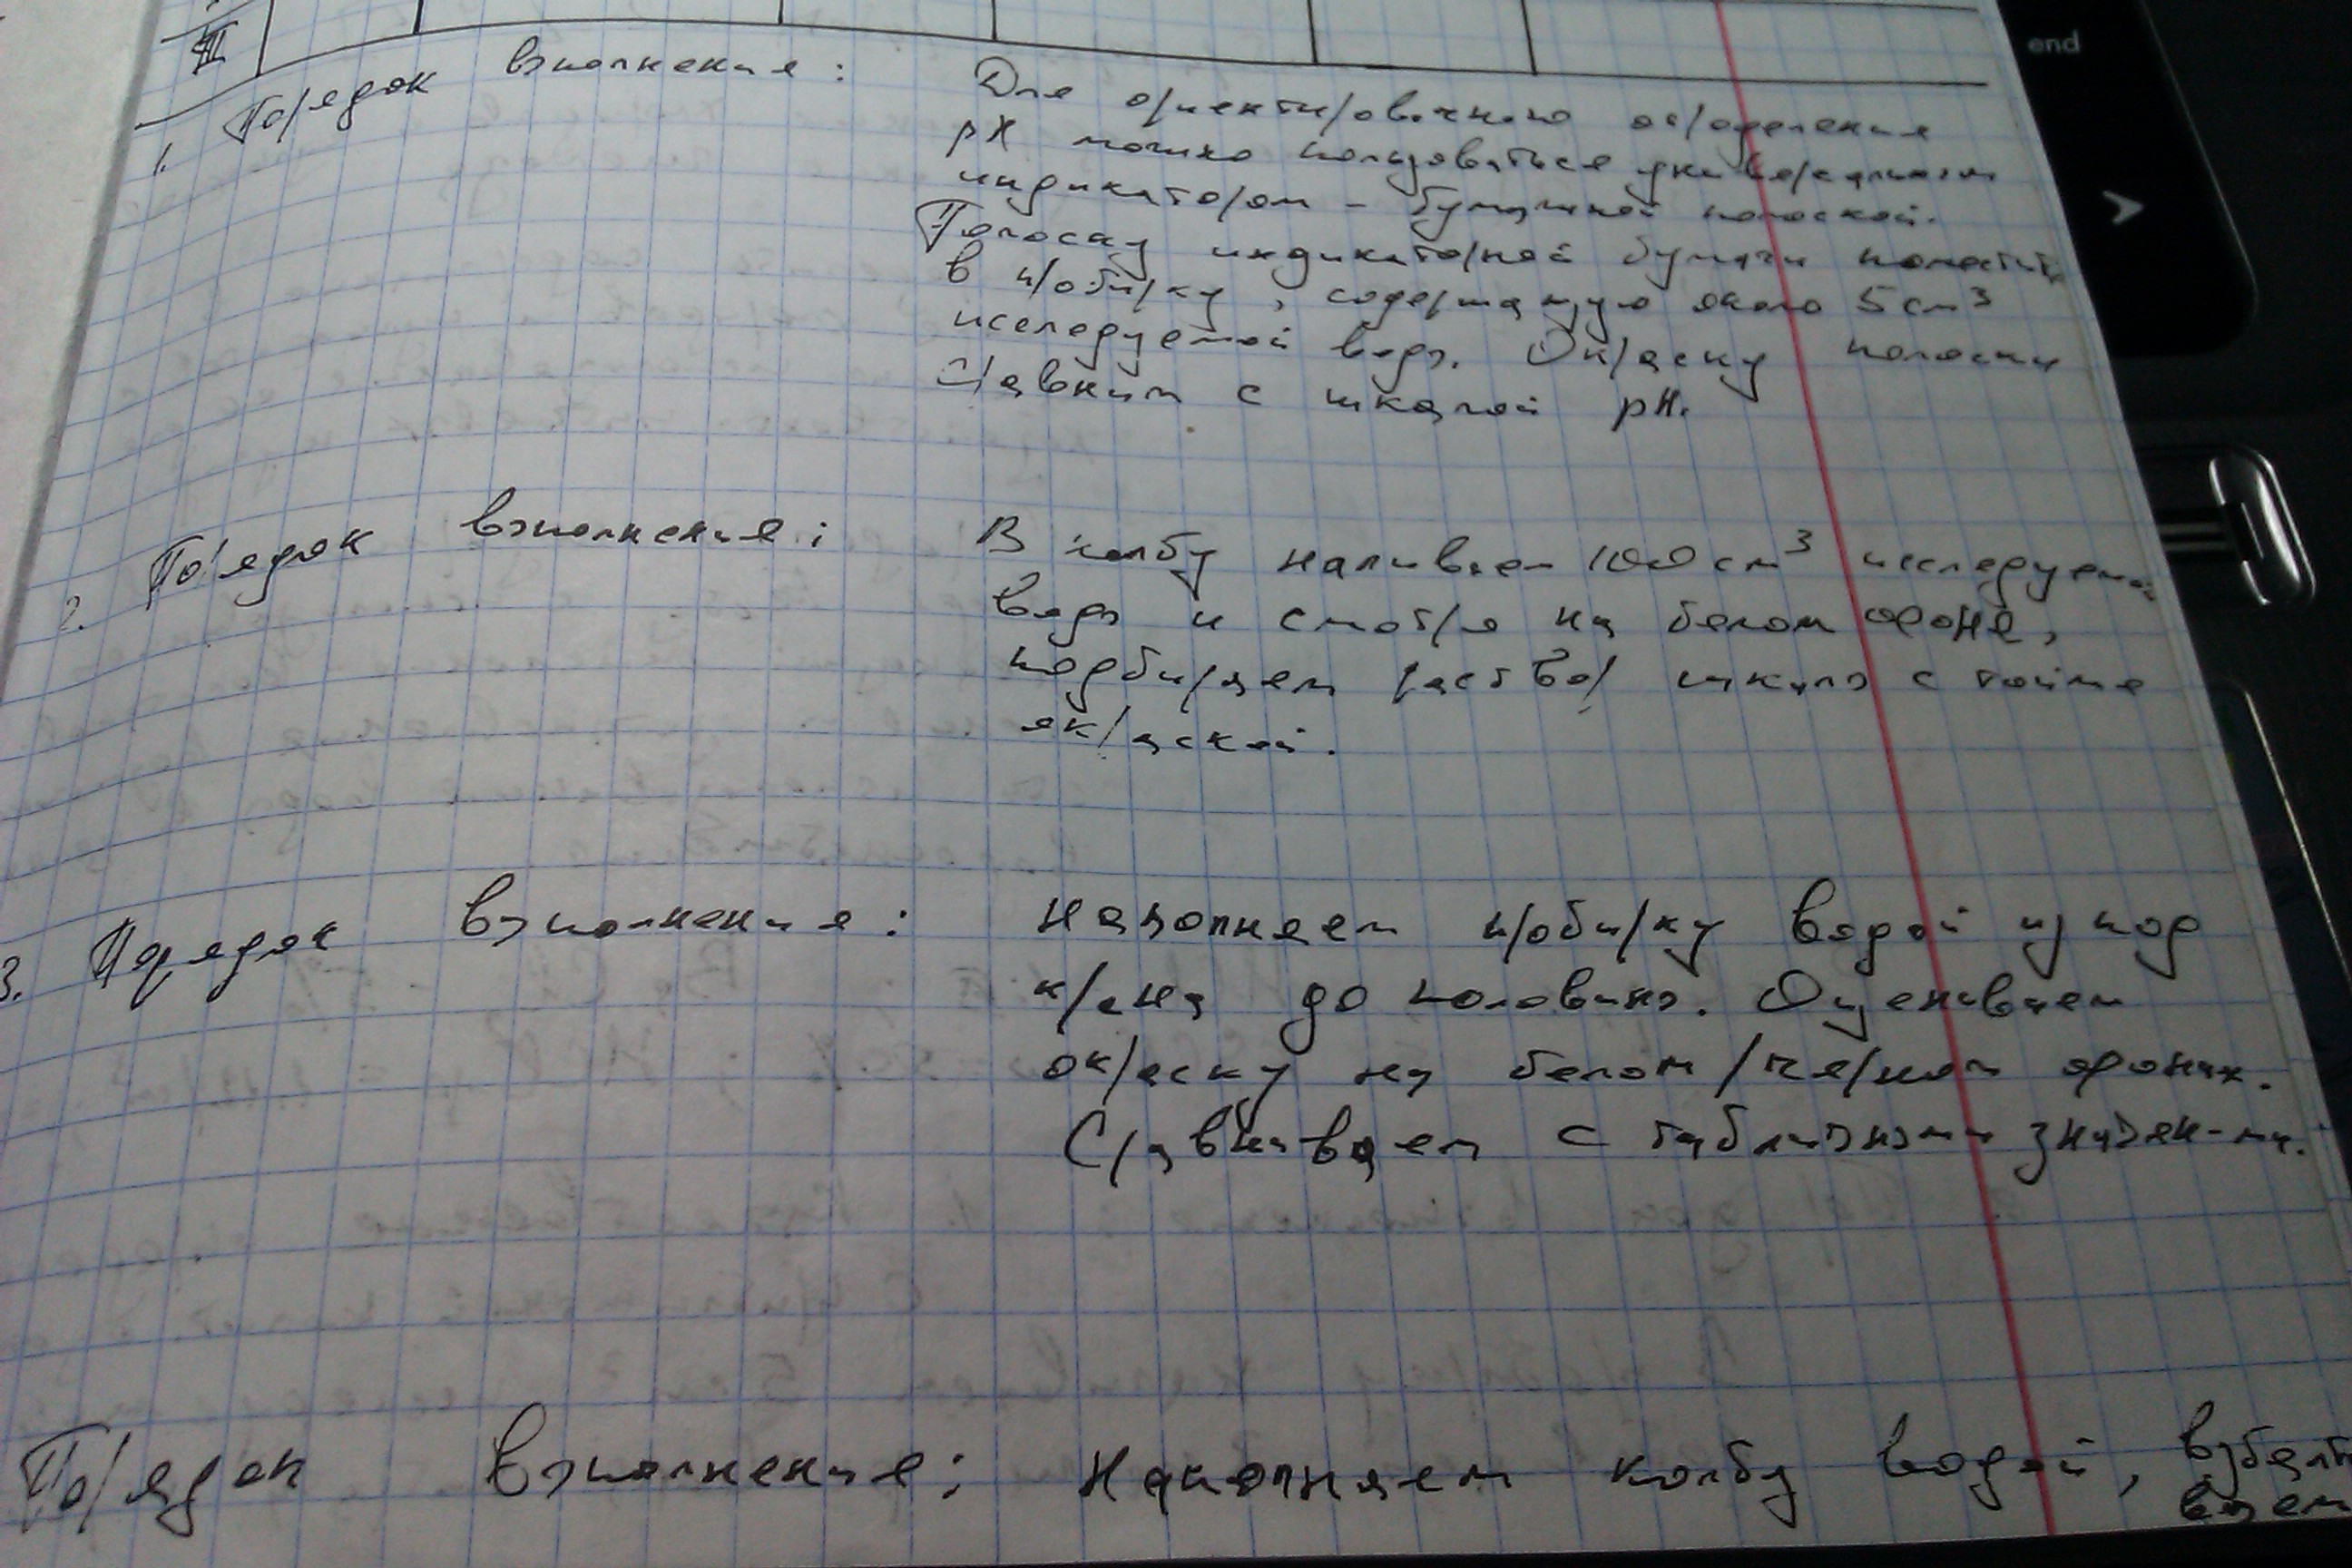 III
1. Порядок выполнения: Для ориентировочного определения
pH можно пользоваться универсальным
индикатором - бумажной полоской.
Полоску индикаторной бумаги поместить
в пробирку, содержащую около 5 см³
исследуемой воды. Окраску полоски
Сравним с шкалой pH.
2. Порядок выполнения: В колбу наливаем 100 см³ исследуемой
воды и смотря на белом фоне,
подбираем раствор шкалы с тойже
окраской.
3. Порядок выполнения: Наполняем пробирку водой из под
крана до половины. Оцениваем
окраску на белом/черном фонах.
Сравниваем с табличными значен-ми.
Порядок выполнения: Наполняем колбу водой, взбалты
ваем
end